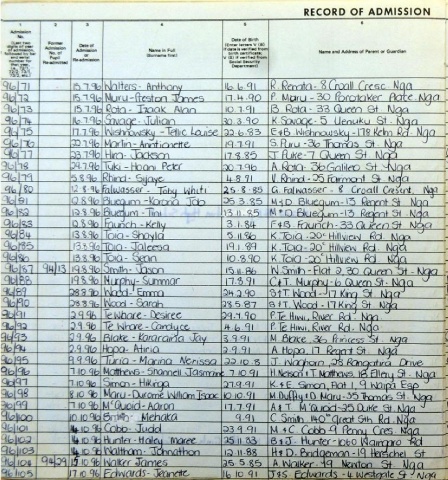 RECORD OF ADMISSION
1 2 3 4 5 6
Admission No. Former Admission No. if Pupil Re-admitted Date of Admission or Re-admission Name in Full (Surname first) Date of Birth Name and Address of Parent or Guardian
96/71 15.7.96 Walters - Anthony 16.6.91 R. Renata - 8 Croall Cresc. Nga
96/72 15.7.96 Maru - Preston James 17.4.90 P. Maru - 30 Porotaker Nga
96/73 15.7.96 Rota - Isaak Alan 10.7.91 B. Rota - 33 Queen St. Nga
96/74 16.7.96 Savage - Julian 30.3.90 K. Savage - 5 Uenuku St. Nga
96/75 17.7.96 Wishnowsky - Louise 22.6.83 E+B Wishnowsky - 178 Rd. Nga
96/76 22.7.96 Martin - Anntionette 19.7.91 S. Puru - 36 Thomas St. Nga
96/77 23.7.96 Hira - Jackson 17.8.85 J. Puke - 7 Queen St. Nga
96/78 24.7.96 Tuki - Hoani Peter 20.7.96 A. Rota - 36 Galileo St. Nga
96/79 5.8.96 Rhind - 4.8.91 L. Rhind - 25 Fairmont St. Nga
96/80 12.8.96 Falwasser - Toby Whiti 25.8.85 G. Falwasser - 8 Croall Cresent, Nga
96/81 12.8.96 Bluegum - Korona Job 25.3.85 M+D Bluegum - 13 Regent St. Nga
96/82 12.8.96 Bluegum - Tini 13.11.85 M+D Bluegum - 13 Regent St. Nga
96/83 12.8.96 Faunch - Kelly 3.1.84 E+B Faunch - 33 Queen St. Nga
96/84 13.8.96 Toia - Shayla 5.11.86 K. Toia - 20 Hillview Rd. Nga
96/85 13.8.96 Toia - Jaleesa 19.1.89 K. Toia - 20 Hillview Rd. Nga
96/86 13.8.96 Toia - Sean 10.8.90 K. Toia - 20 Hillview Rd. Nga
96/87 94/13 19.8.96 Smith - Jason 15.11.86 W. Smith - Flat 2, 30 Queen St. Nga
96/88 19.8.96 Murphy - Summar 17.8.91 C+T. Murphy - 6 Queen St. Nga
96/89 28.8.96 Wood - Emma 24.2.90 S+T. Wood - 17 King St. Nga
96/90 28.8.96 Wood - Sarah 28.5.87 S+T. Wood - 17 King St. Nga
96/91 2.9.96 Te Whare - Desiree 29.7.90 P. Te Hiwi, River Rd. Nga
96/92 2.9.96 Te Whare - Candyce 4.6.91 P. Te Hiwi, River Rd. Nga
96/93 2.9.96 Blake - Kararaina Jay 3.9.91 M. Blake, 36 Princess St. Nga
96/94 2.9.96 Hopa - Atiria 2.9.91 A. Hopa, 17 Regent St. Nga
96/95 9.9.96 Turia - Marina Nerissa 22.10.8 J. Waghorn, 23 Rangatira Drive
96/96 7.10.96 Matthews - Shannell Jasmine 7.10.91 H. Nelson + T. Matthews, 18 Ellery St. Nga
96/97 7.10.96 Simon - Hikinga 27.9.91 K+E Simon, Flat 1, 9 Waipa Esp
96/98 8.10.96 Maru - Durome William Isaac 10.10.91 M. Duffy + D. Maru - 35 Thomas St. Nga
96/99 7.10.96 M'Quoid - Aaron 17.7.91 A+T M'Quoid - 25 Duke St. Nga
96/100 10.10.96 Smith - Mehaka 9.9.91 C. Smith - 140 Great Sth Rd. Nga
96/101 14.10.96 Cobb - Judd 23.9.91 M+C Cobb, 9 Penny Cres. Nga
96/102 14.10.96 Hunter - Hailey Maree 25.11.83 B+J. Hunter - Waingaro Rd.
96/103 14.10.96 Waltham - Johnathon 12.11.88 H+D. Bridgeman - 19 Herschel St
96/104 94/29 15.10.96 Walker James 25.5.85 A. Walker - 19 Newton St. Nga
96/105 17.10.96 Edwards - Jeanette 16.10.91 J+S Edwards - 4 Westgate St. Nga